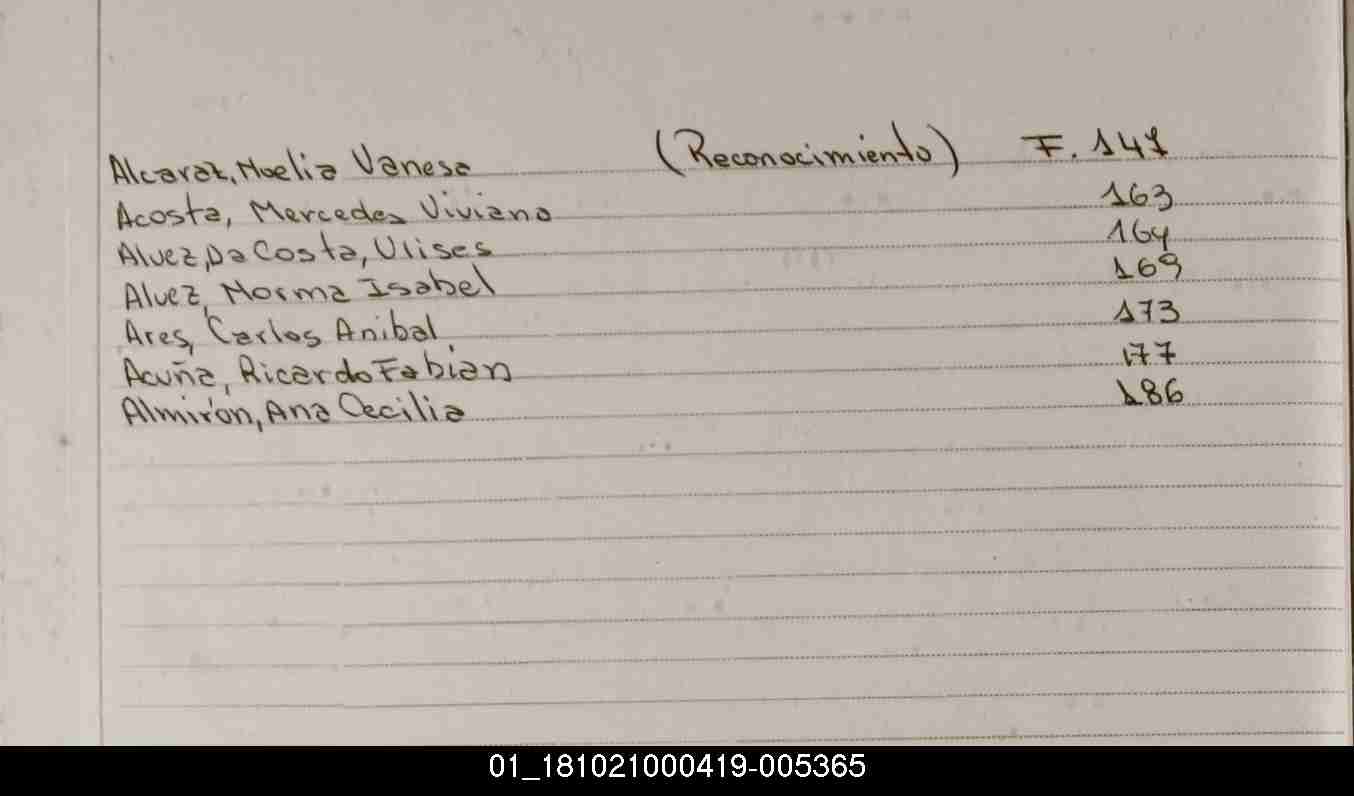 Alcaraz, Noelia Vanesa (Reconocimiento) F. 147
Acosta, Mercedes Viviana 163
Alvez, Da Costa, Ulises 164
Alvez, Norma Isabel 169
Ares, Carlos Anibal 173
Acuña, Ricardo Fabian 177
Almirón, Ana Cecilia 186
01_181021000419-005365